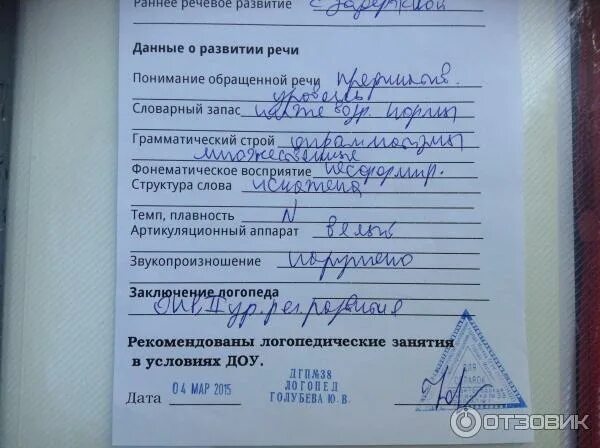 Раннее речевое развитие с задержкой
Данные о развитии речи
Понимание обращенной речи
уровень
Словарный запас ниже возр. нормы
Грамматический строй аграмматизмы
множественные
Фонематическое восприятие несформир.
Структура слова искажена
Темп, плавность N
Артикуляционный аппарат вялый
Звукопроизношение нарушено
Заключение логопеда
ОНР II ур. реч. развития
Рекомендованы логопедические занятия
в условиях ДОУ.
Дата 04 МАР 2015
ДГП№38
ЛОГОПЕД
ГОЛУБЕВА Ю.В.
ДЛЯ
СПРАВОК
ОТЗОВИК